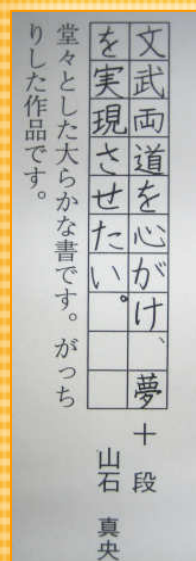 文武両道を心がけ、夢
を実現させたい。
十段
山石 真央
堂々とした大らかな書です。がっち
りした作品です。